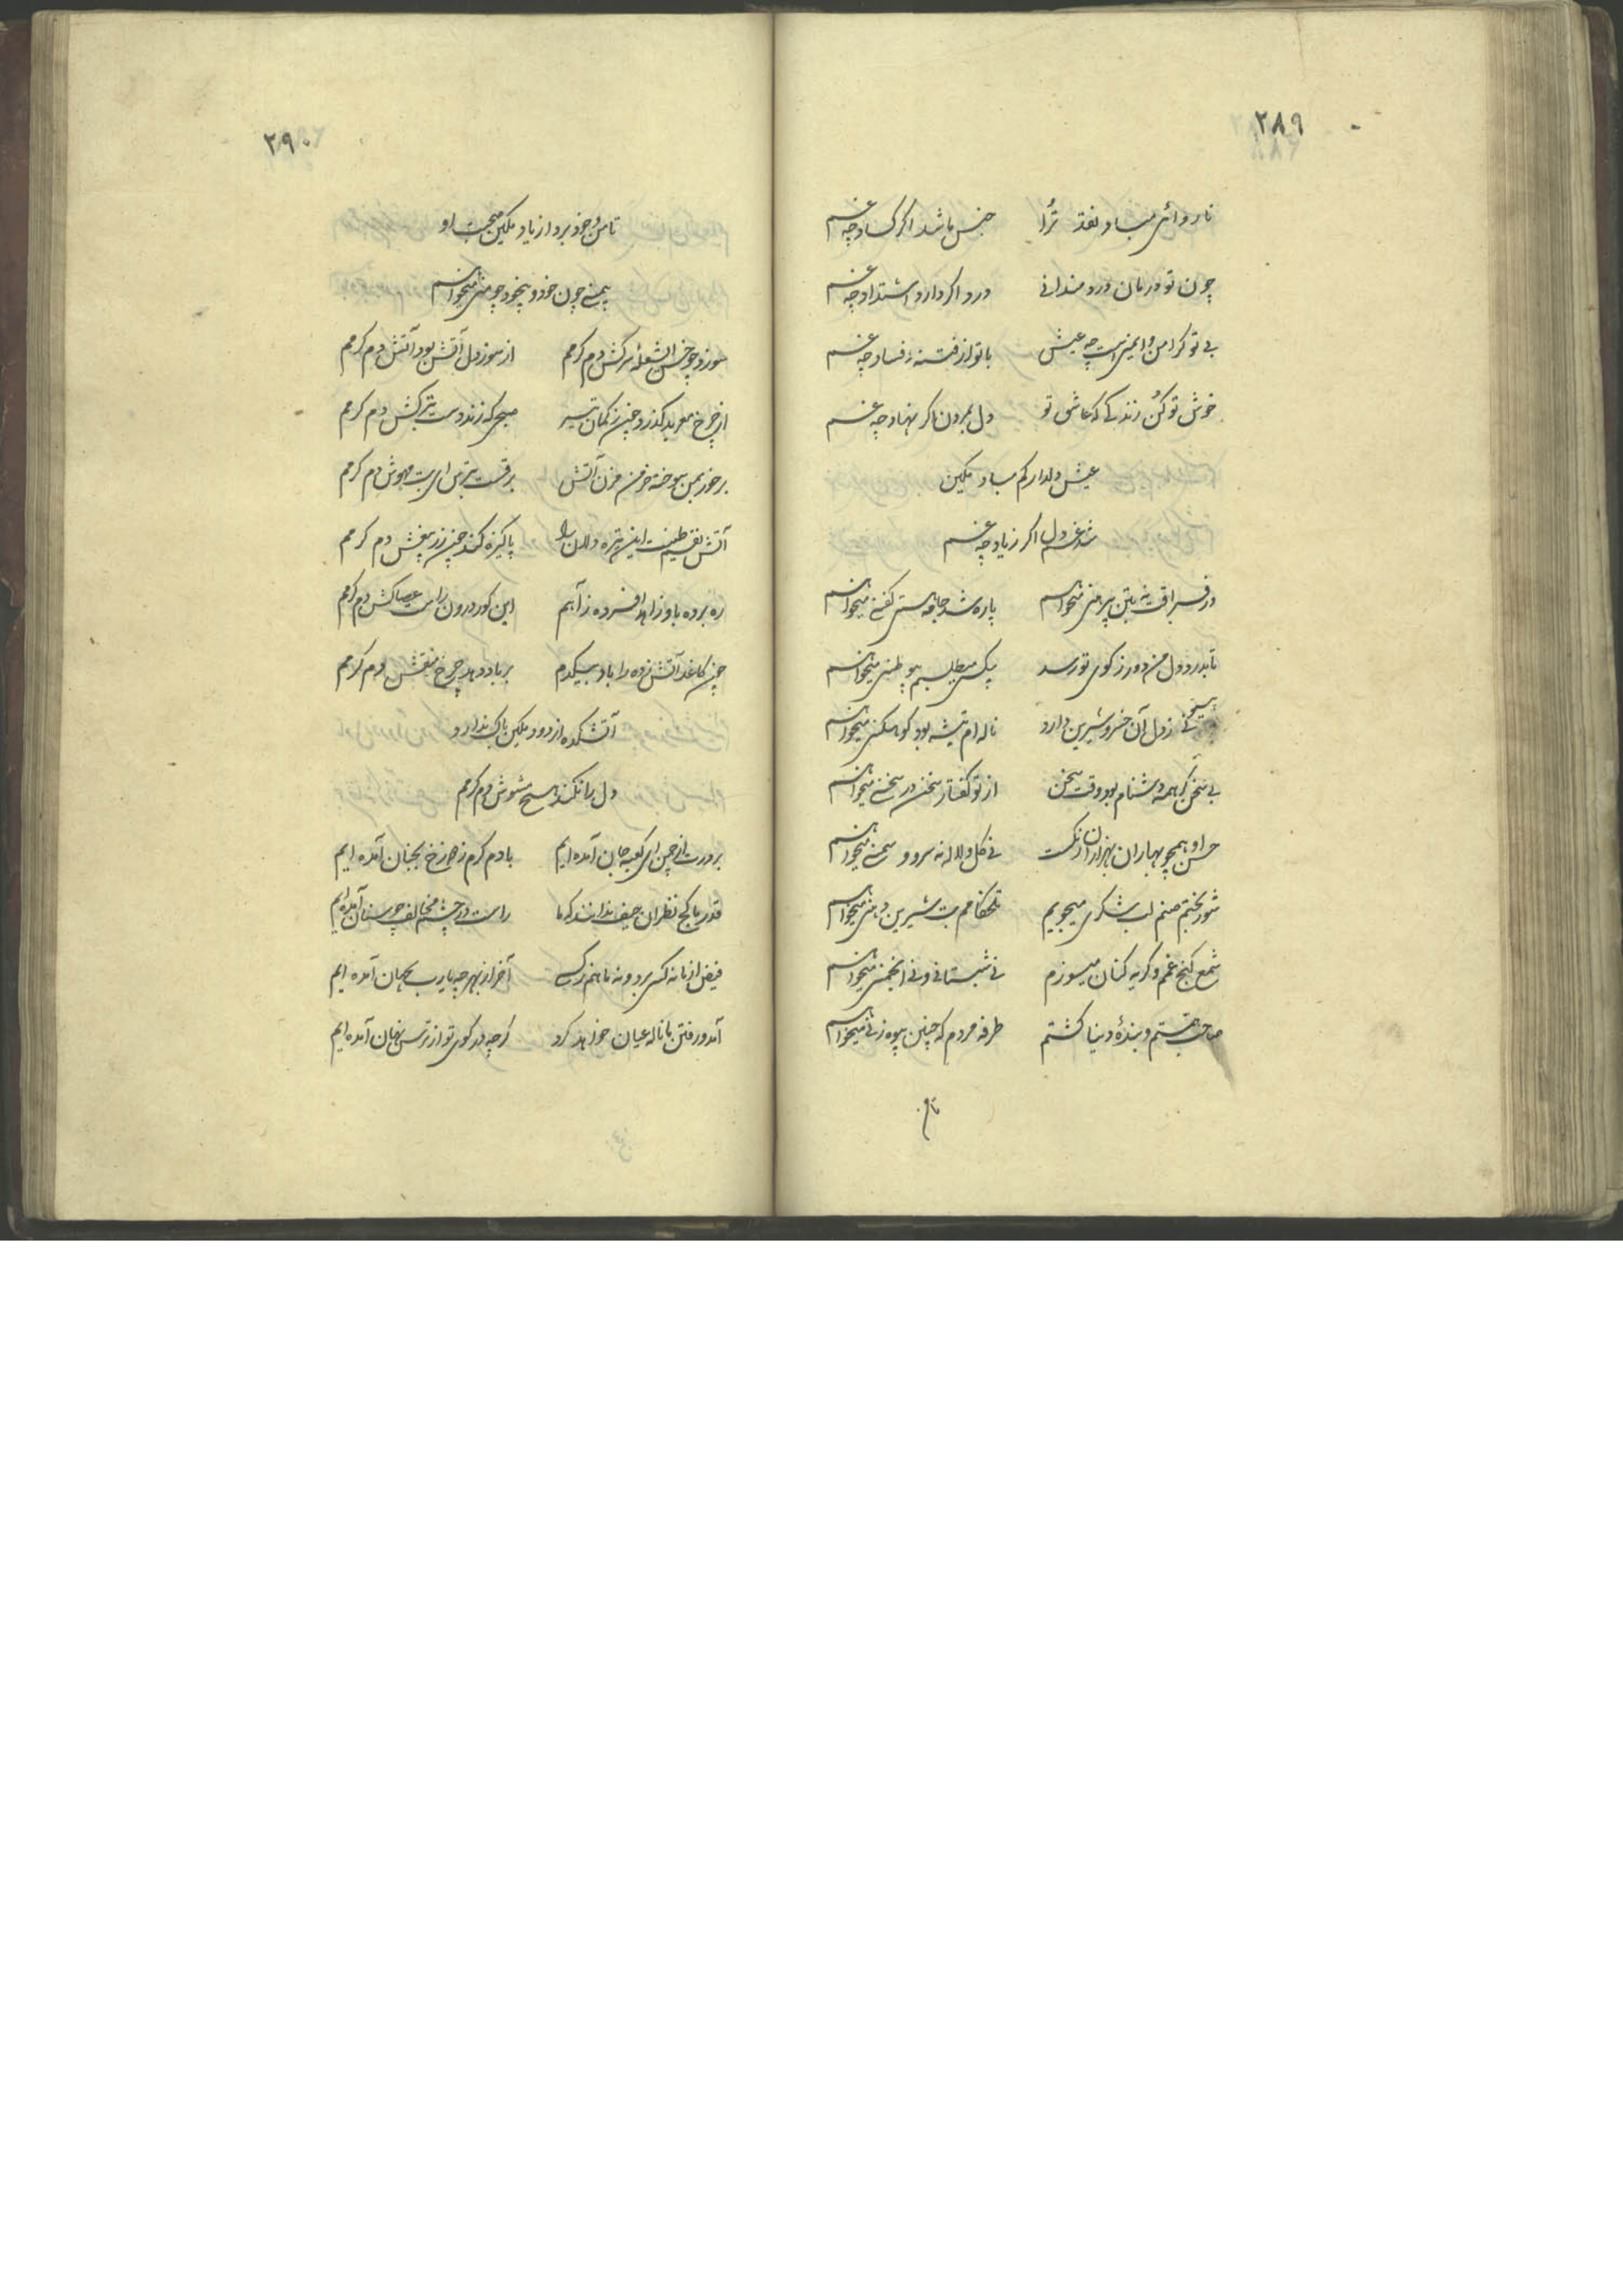 ۲۸۹
ناروائی مباد نقد ترا جنس باشد اگر کساد چه غم
چون تو درمان دردمندانی درد اگر دارد اشتداد چه غم
بی تو گر امن و ایمنی است چه عیش با تو از فتنه و فساد چه غم
خوش تو کن زندگی که عاشق تو دل بمردن اگر نهاد چه غم
عیش دلدار کم مباد مکین
شد غم دل اگر زیاد چه غم
در فراقت نه بتن پیرهنی میخواهم پاره شد جامه هستی کفنی میخواهم
تا بدرد دل من دور ز کوی تو رسد یکسی میطلبم هموطنی میخواهم
زدل آن خسرو شیرین دارد ناله ام تیشه بود کوهکنی میخواهم
بی سخن گر همه دشنام بود وقت سخن از تو گفتار سخن در سخنی میخواهم
حسن او همچو بهاران بهزاران رنگست نی گل و لاله نه سرو و سمنی میخواهم
شور بختم صنم لب شکری میجویم تلخکامم بت شیرین دهنی میخواهم
شمع کنج غم و گریه کنان میسوزم نی شبستانی و نی انجمنی میخواهم
صاحب همتم و بنده دنیا گشتم طرفه مردم که چنین بیوه زنی میخواهم
تا من
۲۹۰
تا من و خود برد از یاد مکین صحبت او
همچون خود و بیخود چو منی میخواهم
سوزد چو خس از شعله سرکش دم گرمم از سوز دل آتش بود آتش دم گرمم
از چرخ بگذرد چون ز کمان تیر صبحی که زند دست بترکش دم گرمم
بر خود بمن سوخته خرمن مزن آتش برقست بترس ای بت مهوش دم گرمم
آتش نفسم طینت این تیره دلان را پاکیزه کند چون زر بیغش دم گرمم
ره برده باو زاهد افسرده ز آهم این کور درون راست عصاکش دم گرمم
چون کاغذ آتش زده را باد بیکدم بر باد دهد چرخ منقش دم گرمم
آتشکده از دود مکین باک ندارد
دل را نکند هیچ مشوش دم گرمم
بر درت از چمن ای کعبه جان آمده ایم با دم گرم ز دوزخ بجنان آمده ایم
قدر ما کج نظران حیف ندانند که ما راست در چشم مخالف چو سنان آمده ایم
فیض از ما نه کسی برد و نه ما هم ز کسی آخر از بهر چه یا رب بجهان آمده ایم
آمد و رفتن ما ناله عیان خواهد کرد گرچه در کوی تو از ترس نهان آمده ایم